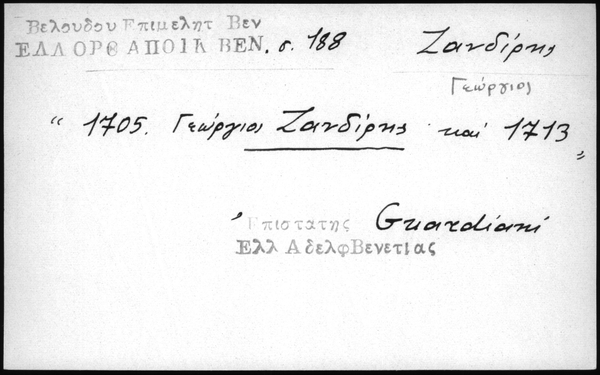 Βελουδου Επιμελητ Βεν
ΕΛΛ ΟΡΘ ΑΠΟΙΚ ΒΕΝ. σ. 188 Ζανδίρης
Γεώργιος
" 1705. Γεώργιος Ζανδίρης καί 1713 "
Επιστατης Guardiani
Ελλ ΑδελφΒενετιας